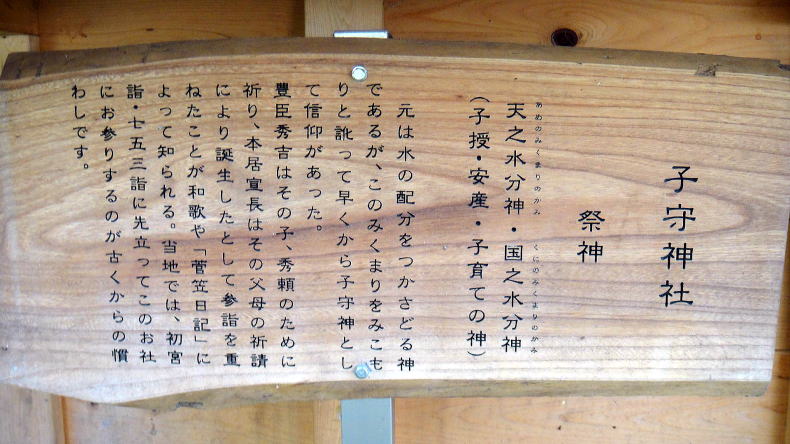 子守神社
祭神
あめのみくまりのかみ くにのみくまりのかみ
天之水分神・国之水分神
(子授・安産・子育ての神)
元は水の配分をつかさどる神
であるが、このみくまりをみこも
りと訛って早くから子守神とし
て信仰があった。
豊臣秀吉はその子、秀頼のために
祈り、本居宣長はその父母の祈請
により誕生したとして参詣を重
ねたことが和歌や「菅笠日記」に
よって知られる。当地では、初宮
詣・七五三詣に先立ってこのお社
にお参りするのが古くからの慣
わしです。